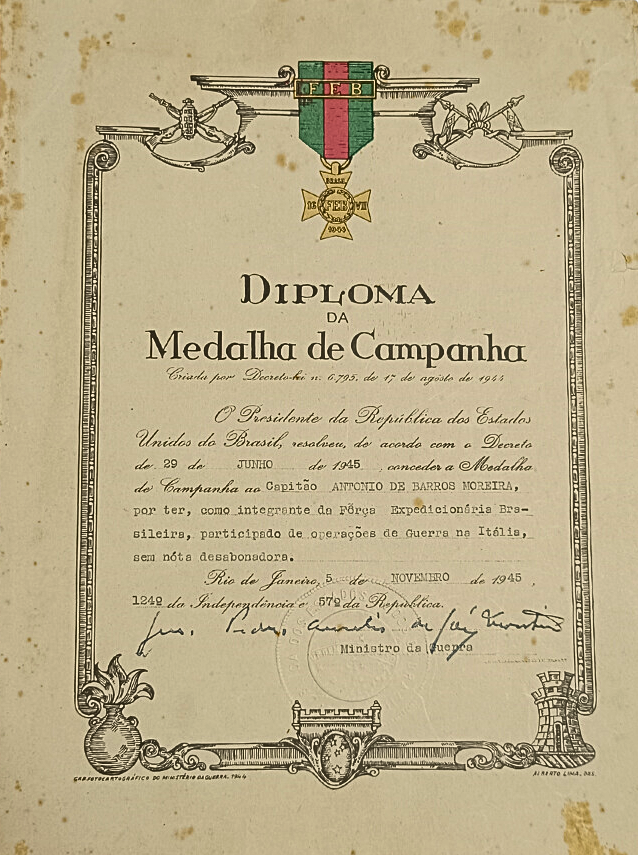 FEB
BRASIL
DE FEB VII
1944
DIPLOMA
DA
Medalha de Campanha
Criada por Decreto-lei n. 6.795, de 17 de agôsto de 1944
O Presidente da República dos Estados
Unidos do Brasil, resolveu, de acordo com o Decreto
de 29 de JUNHO de 1945, conceder a Medalha
de Campanha ao Capitão ANTONIO DE BARROS MOREIRA,
por ter, como integrante da Fôrça Expedicionária Bra-
sileira, participado de operações de Guerra na Itália,
sem nóta desabonadora.
Rio de Janeiro, 5 de NOVEMBRO de 1945,
124º da Independência e 57º da República.
Ministro da Guerra
GAB. FOTOCARTOGRÁFICO DO MINISTÉRIO DA GUERRA. 1944
ALBERTO LIMA, DES.